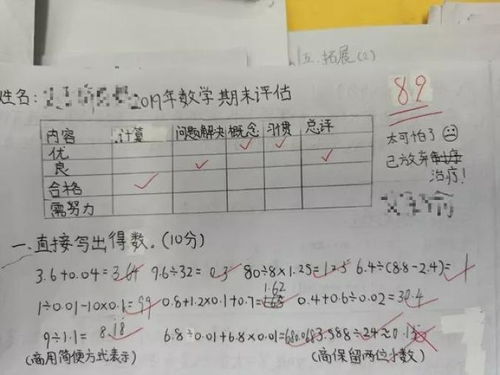 五、拓展(2)
姓名: 2019年数学期末评估 89
内容 计算 问题解决 概念 习惯 总评
优
良
合格
需努力
太可怕了
已放弃
治疗!
一、直接写出得数。(10分)
3.6+0.04=3.64 9.6÷32=0.3 80÷8×1.25=12.5 6.4÷(8.8-2.4)=1
1÷0.01-10×0.1=99 0.8+1.2×0.1+0.7=1.62 0.4+0.6÷0.02=30.4
9÷1.1=8.18 6.8÷0.01+6.8×0.01=680.068 3.588÷24≈0.15
(商用简便方式表示) (商保留两位小数)